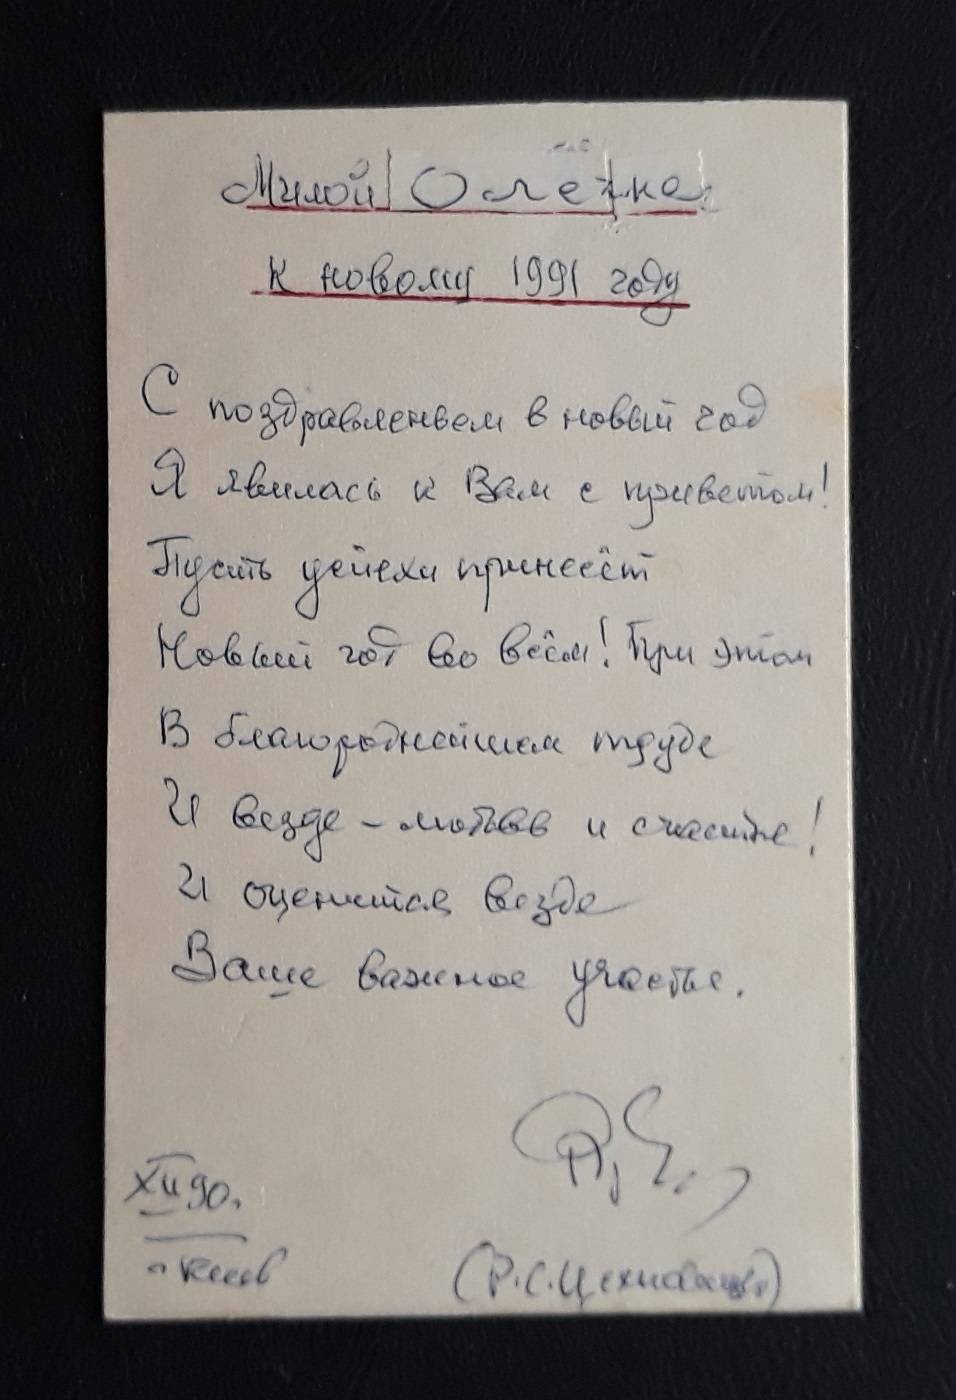 Милой Олежке
к новому 1991 году
С поздравленьем в новый год
Я явилась к Вам с приветом!
Пусть успехи принесёт
Новый год во всём! При этом
В благороднейшем труде
И везде – любовь и счастье!
И оценится везде
Ваше важное участье.
XII 90.
г. Киев
(Р.С.